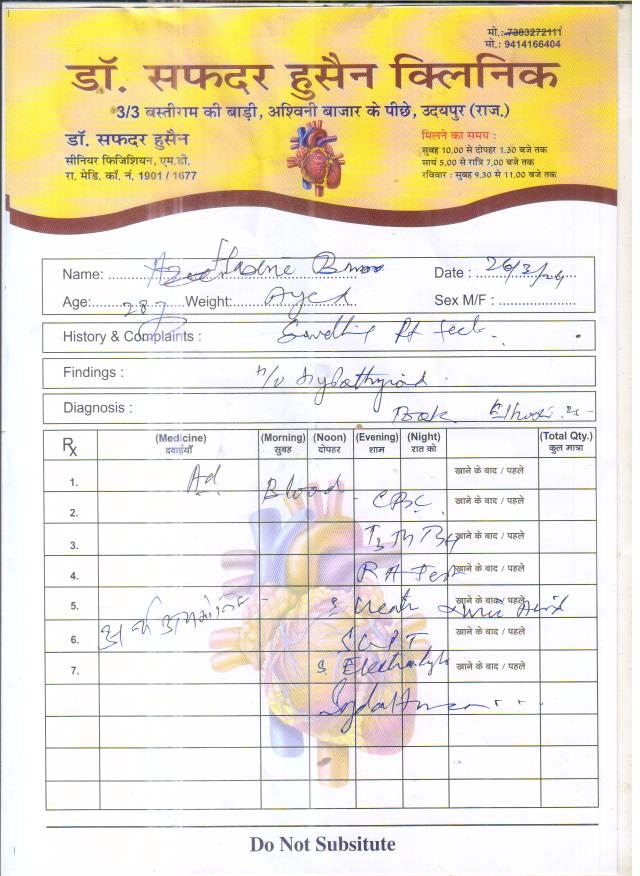 मो.: 7383272111
मो.: 9414166404
डॉ. सफदर हुसैन क्लिनिक
3/3 बस्तीराम की बाड़ी, अश्विनी बाजार के पीछे, उदयपुर (राज.)
डॉ. सफदर हुसैन
सीनियर फिजिशियन, एम.डी.
रा. मेडि. कॉ. नं. 1901 / 1677
मिलने का समय :
सुबह 10.00 से दोपहर 1.30 बजे तक
सायं 5.00 से रात्रि 7.00 बजे तक
रविवार : सुबह 9.30 से 11.00 बजे तक
Name: Date : 26/3/24
Age: 28 y Weight: Sex M/F :
History & Complaints : Swelling feet
Findings : H/o
Diagnosis :
Rx (Medicine) (Morning) (Noon) (Evening) (Night) (Total Qty.)
दवाईयाँ सुबह दोपहर शाम रात को कुल मात्रा
1. Ad Blood खाने के बाद / पहले
2. CBC खाने के बाद / पहले
3. T3 T4 खाने के बाद / पहले
4. RA Test खाने के बाद / पहले
5. S. Uric Acid खाने के बाद / पहले
6. SGPT खाने के बाद / पहले
7. S. Electrolyte खाने के बाद / पहले
Do Not Subsitute